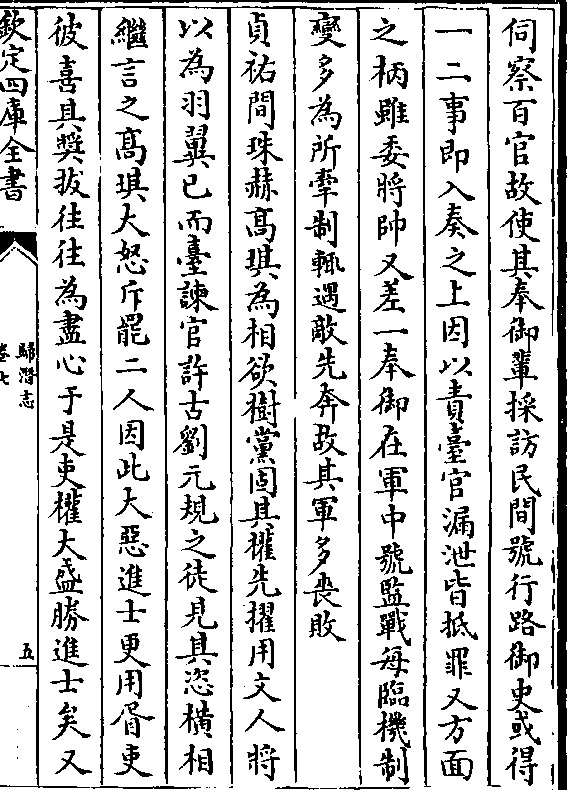 伺察百官故使其奉御軰採訪民間號行路御史或得
一二事即入奏之上因以責臺官漏泄皆抵罪又方面
之柄雖委將帥又差一奉御在軍中號監戰每臨機制
變多為所牽制輒遇敵先奔故其軍多喪敗
貞祐間珠赫髙琪為相欲樹黨固其權先擢用文人將
以為羽翼已而臺諫官許古劉元規之徒見其恣橫相
繼言之髙琪大怒斥罷二人因此大惡進士更用胥吏
彼喜其奬拔往往為盡心于是吏權大盛勝進士矣又
欽定四庫全書
歸潛志
卷七
五